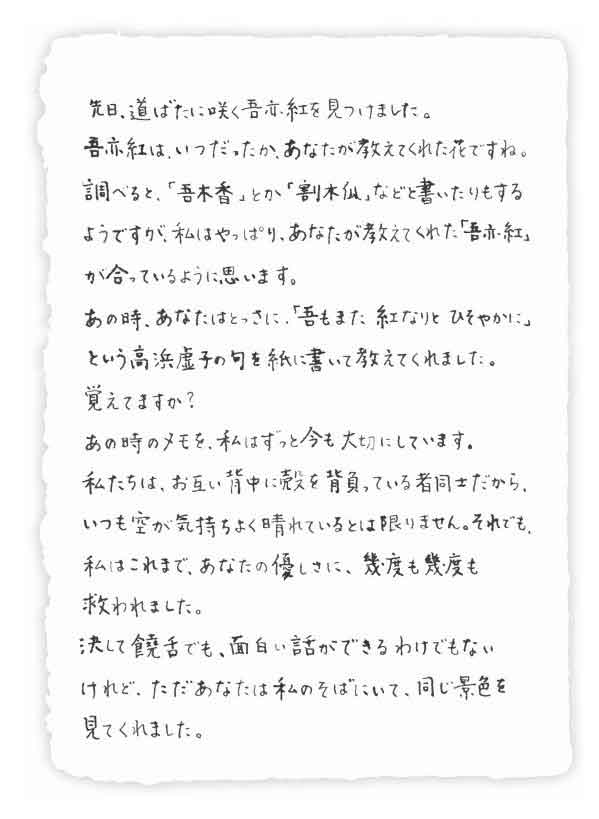 先日、道ばたに咲く吾亦紅を見つけました。
吾亦紅は、いつだったか、あなたが教えてくれた花ですね。
調べると、「吾木香」とか「割木瓜」などと書いたりもする
ようですが、私はやっぱり、あなたが教えてくれた「吾亦紅」
が合っているように思います。
あの時、あなたはとっさに、「吾もまた 紅なりと ひそやかに」
という高浜虚子の句を紙に書いて教えてくれました。
覚えてますか?
あの時のメモを、私はずっと今も大切にしています。
私たちは、お互い背中に殻を背負っている者同士だから、
いつも空が気持ちよく晴れているとは限りません。それでも、
私はこれまで、あなたの優しさに、幾度も幾度も
救われました。
決して饒舌でも、面白い話ができるわけでもない
けれど、ただあなたは私のそばにいて、同じ景色を
見てくれました。